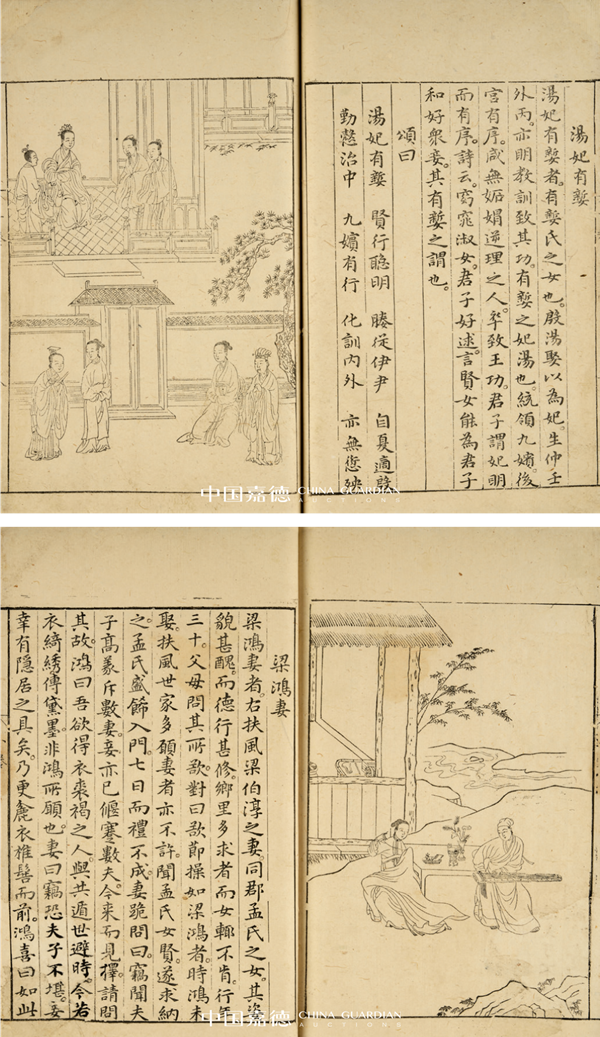 湯妃有㜪
湯妃有㜪者。有㜪氏之女也。殷湯娶以為妃。生仲壬
外丙。亦明教訓致其功。有㜪之妃湯也。統領九嬪。後
宮有序。咸無妬媢逆理之人。卒致王功。君子謂妃明
而有序。詩云。窈窕淑女。君子好逑。言賢女能為君子
和好衆妾。其有㜪之謂也。
頌曰
湯妃有㜪 賢行聰明 媵從伊尹 自夏適殷
勤慤治中 九嬪有行 化訓內外 亦無愆殃
中国嘉德 CHINA GUARDIAN
AUCTIONS
梁鴻妻
梁鴻妻者。右扶風梁伯淳之妻。同郡孟氏之女。其姿
貌甚醜。而德行甚修。鄉里多求者。而女輙不肯。行年
三十。父母問其所欲。對曰。欲節操如梁鴻者。時鴻未
娶。扶風世家多願妻者。亦不許。聞孟氏女賢。遂求納
之。孟氏盛飾入門。七日而禮不成。妻跪問曰。竊聞夫
子高義。斥數妻。妾亦已偃蹇數夫。今來而見擇。請問
其故。鴻曰。吾欲得衣裘褐之人。與共遁世避時。今若
衣綺綉。傅黛墨。非鴻所願也。妻曰。竊恐夫子不堪。妾
幸有隱居之具矣。乃更麄衣椎髻而前。鴻喜曰。如此
中国嘉德 CHINA GUARDIAN
AUCTIONS